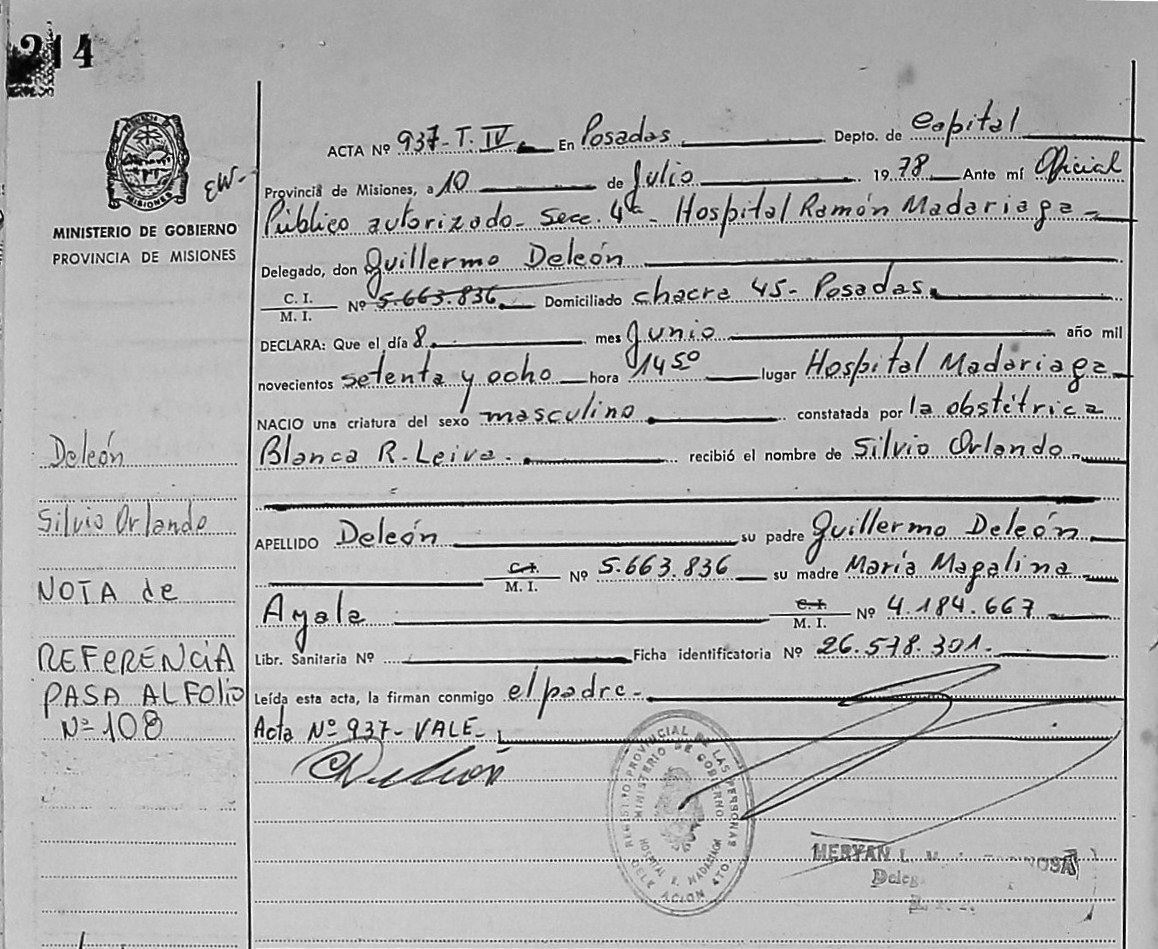 214
ACTA Nº 937-T.IV En Posadas Depto. de Capital
Provincia de Misiones, a 10 de Julio 1978 Ante mí Oficial
Público autorizado - Secc. 4ta - Hospital Ramón Madariaga -
MINISTERIO DE GOBIERNO
PROVINCIA DE MISIONES
Delegado, don Guillermo Deleón
C. I.
M. I. Nº 5.663.836 Domiciliado chacra 45 - Posadas.
DECLARA: Que el día 8 mes Junio año mil
novecientos setenta y ocho hora 1450 lugar Hospital Madariaga
NACIO una criatura del sexo masculino constatada por la obstétrica
Blanca R. Leiva - recibió el nombre de Silvio Orlando -
Deleón
Silvio Orlando
APELLIDO Deleón su padre Guillermo Deleón
C. I.
M. I. Nº 5.663.836 su madre María Magalina
Ayala C. I.
M. I. Nº 4.184.667
Libr. Sanitaria Nº Ficha identificatoria Nº 26.578.301.-
Leída esta acta, la firman conmigo el padre -
Acta Nº 937 - VALE -
NOTA de
REFERENCiA
PASA AL FOLiO
Nº 108
REGISTRO PROVINCIAL DE LAS PERSONAS
MINISTERIO DE GOBIERNO
HOSPITAL R. MADARIAGA
DELEGACION 4TO.